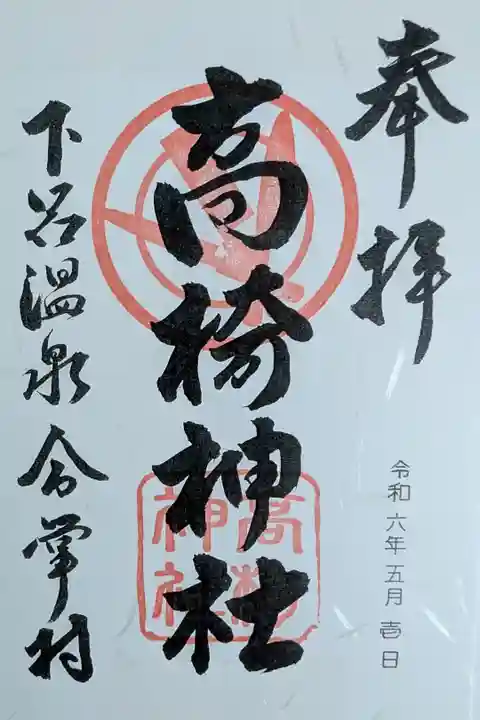 奉拝
令和六年五月壱日
高椅神社
高椅
神社
下呂温泉合掌村